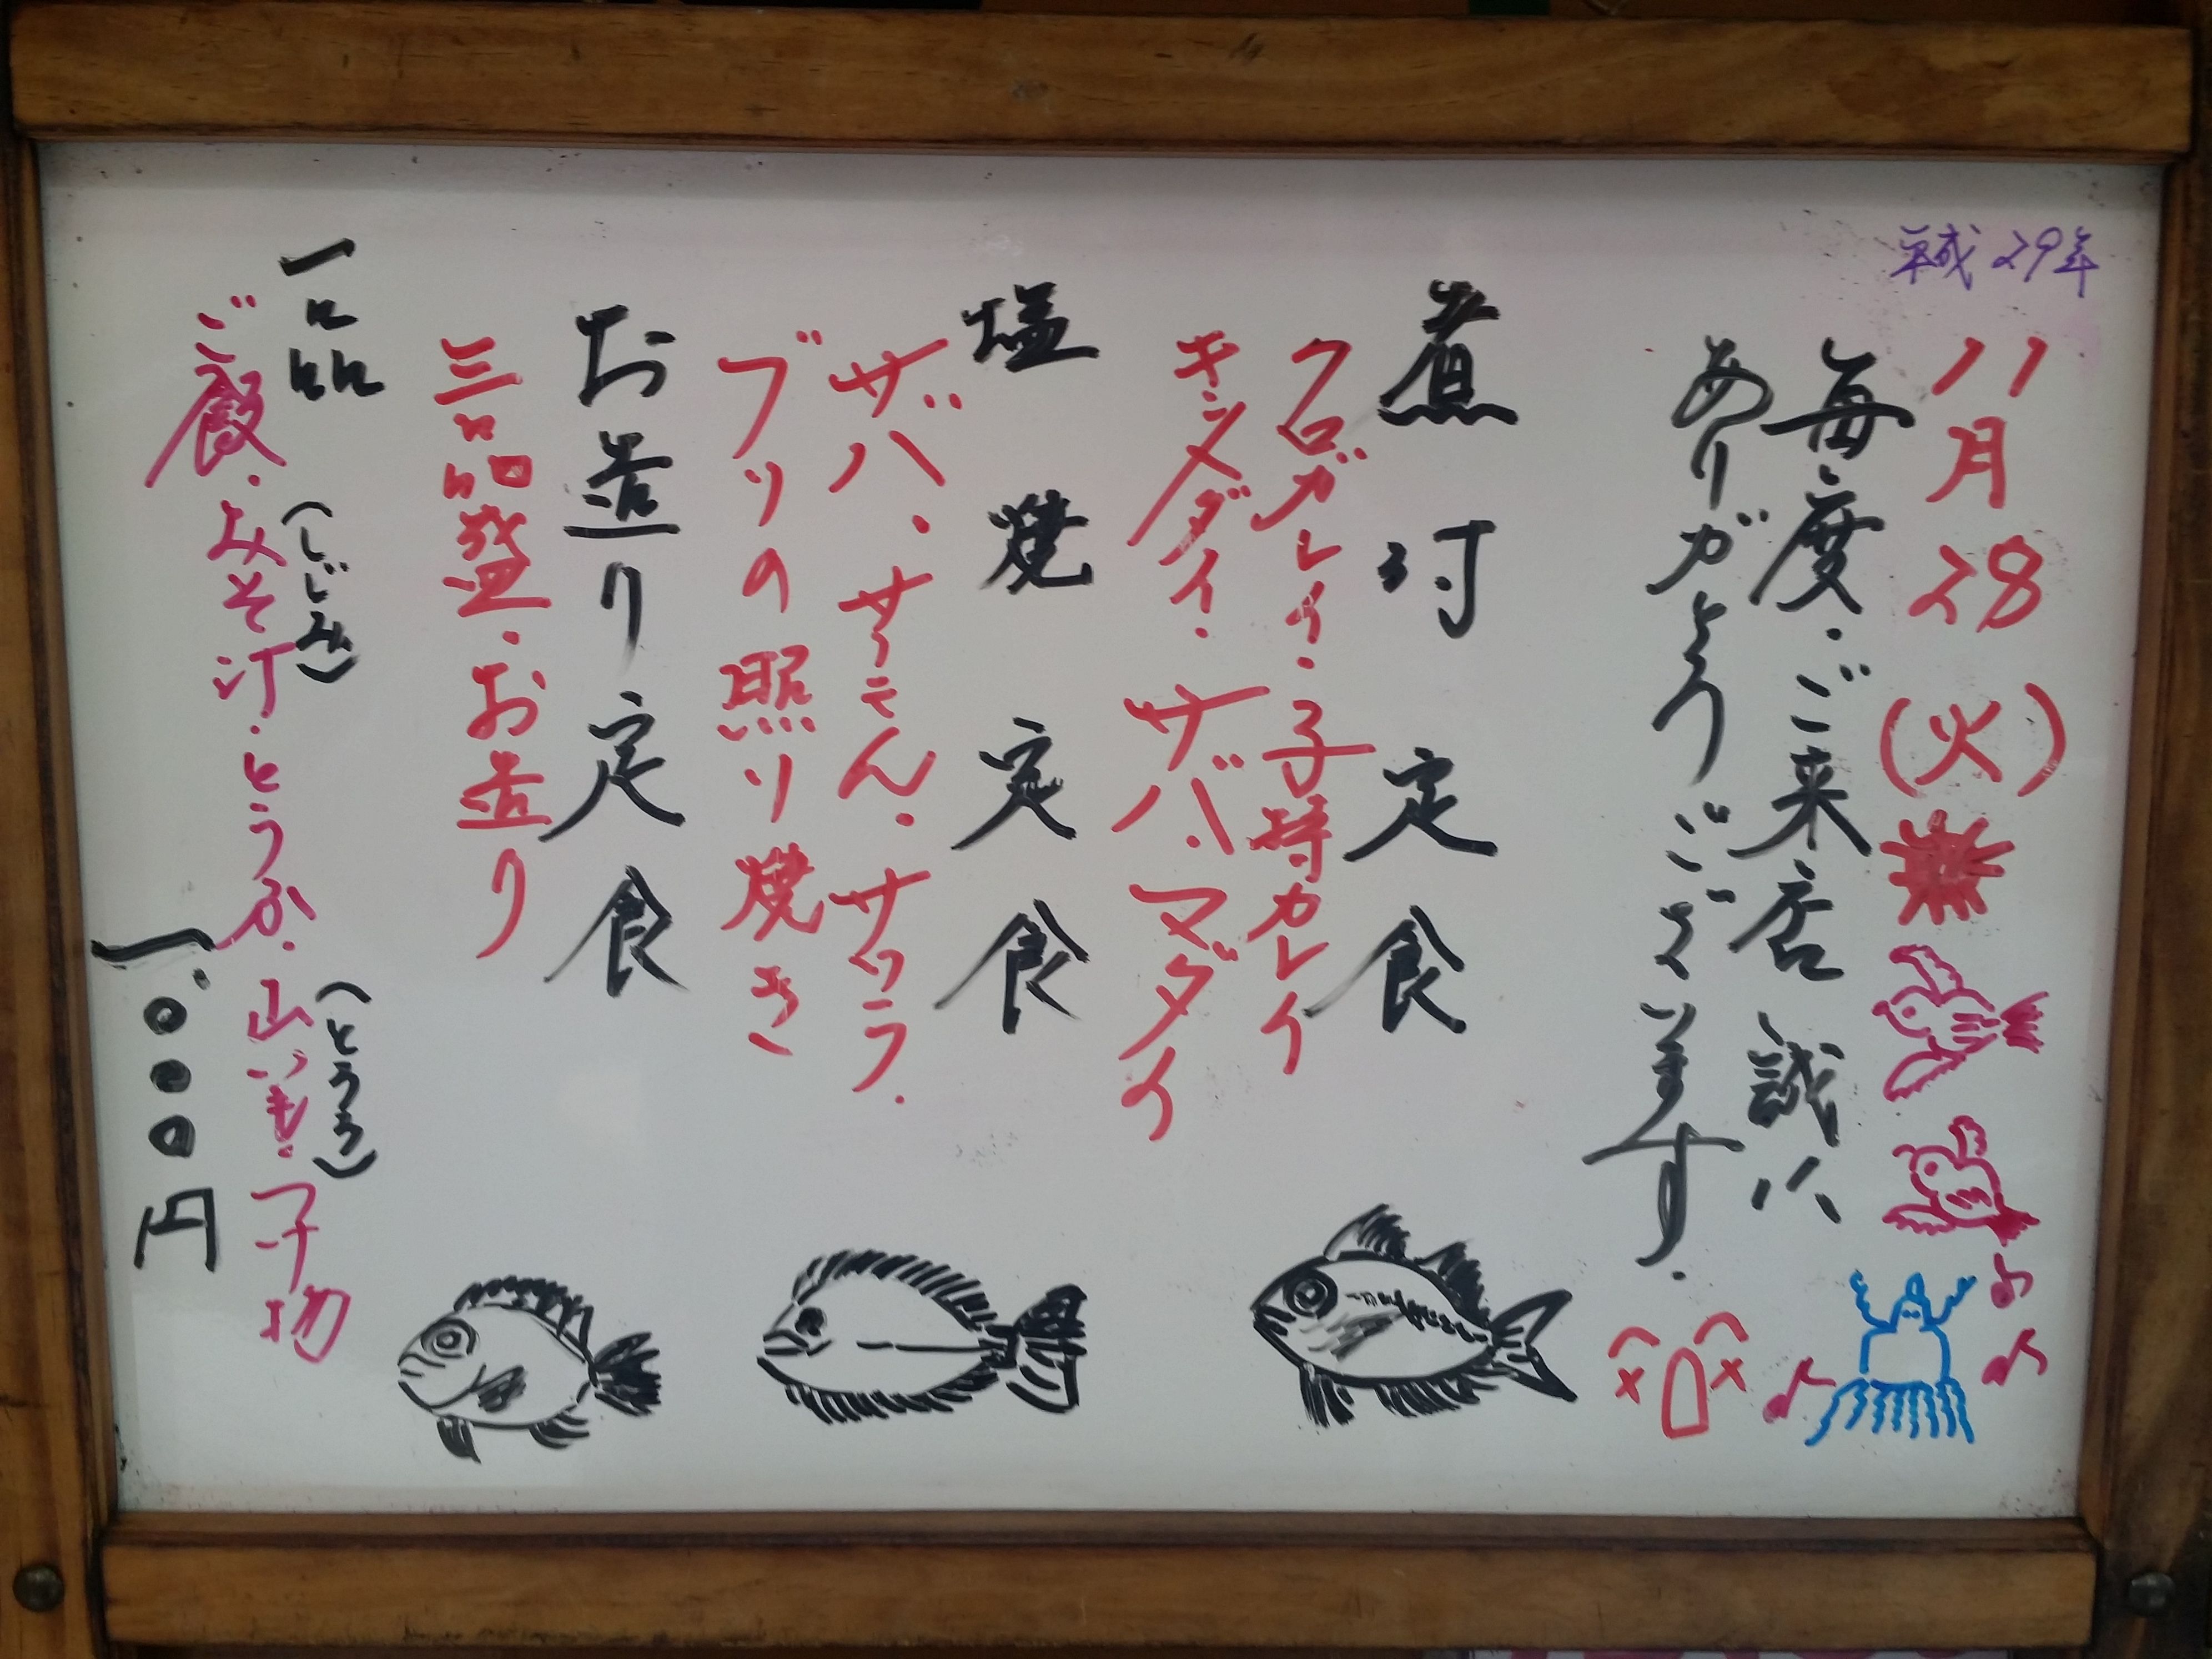 平成29年
11月28(火)
毎度・ご来店誠に
ありガとうございます.
煮付定食
クロガレイ・子持カレイ
キンメダイ・サバ・マダイ
塩焼定食
サバ・サーモン・サワラ・
ブリの照り焼き
お造り定食
三品盛・お造り
一品
(しじみ)
(とろろ)
ご飯・みそ汁・とうふ・山いも・子物
一、〇〇〇円